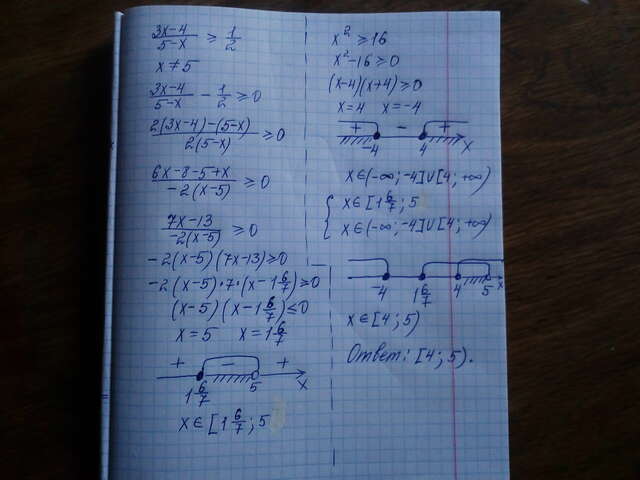 (3x-4)/(5-x) ≥ 1/2
x ≠ 5
(3x-4)/(5-x) - 1/2 ≥ 0
(2(3x-4)-(5-x))/(2(5-x)) ≥ 0
(6x-8-5+x)/(-2(x-5)) ≥ 0
(7x-13)/(-2(x-5)) ≥ 0
-2(x-5)(7x-13) ≥ 0
-2(x-5)·7·(x-1 6/7) ≥ 0
(x-5)(x-1 6/7) ≤ 0
x=5 x=1 6/7
+ - +
1 6/7 5 x
x∈[1 6/7; 5
x² ≥ 16
x²-16 ≥ 0
(x-4)(x+4) ≥ 0
x=4 x=-4
+ - +
-4 4 x
x∈(-∞; -4]∪[4; +∞)
{ x∈[1 6/7; 5
x∈(-∞; -4]∪[4; +∞)
-4 1 6/7 4 5 x
x∈[4; 5)
Ответ: [4; 5).